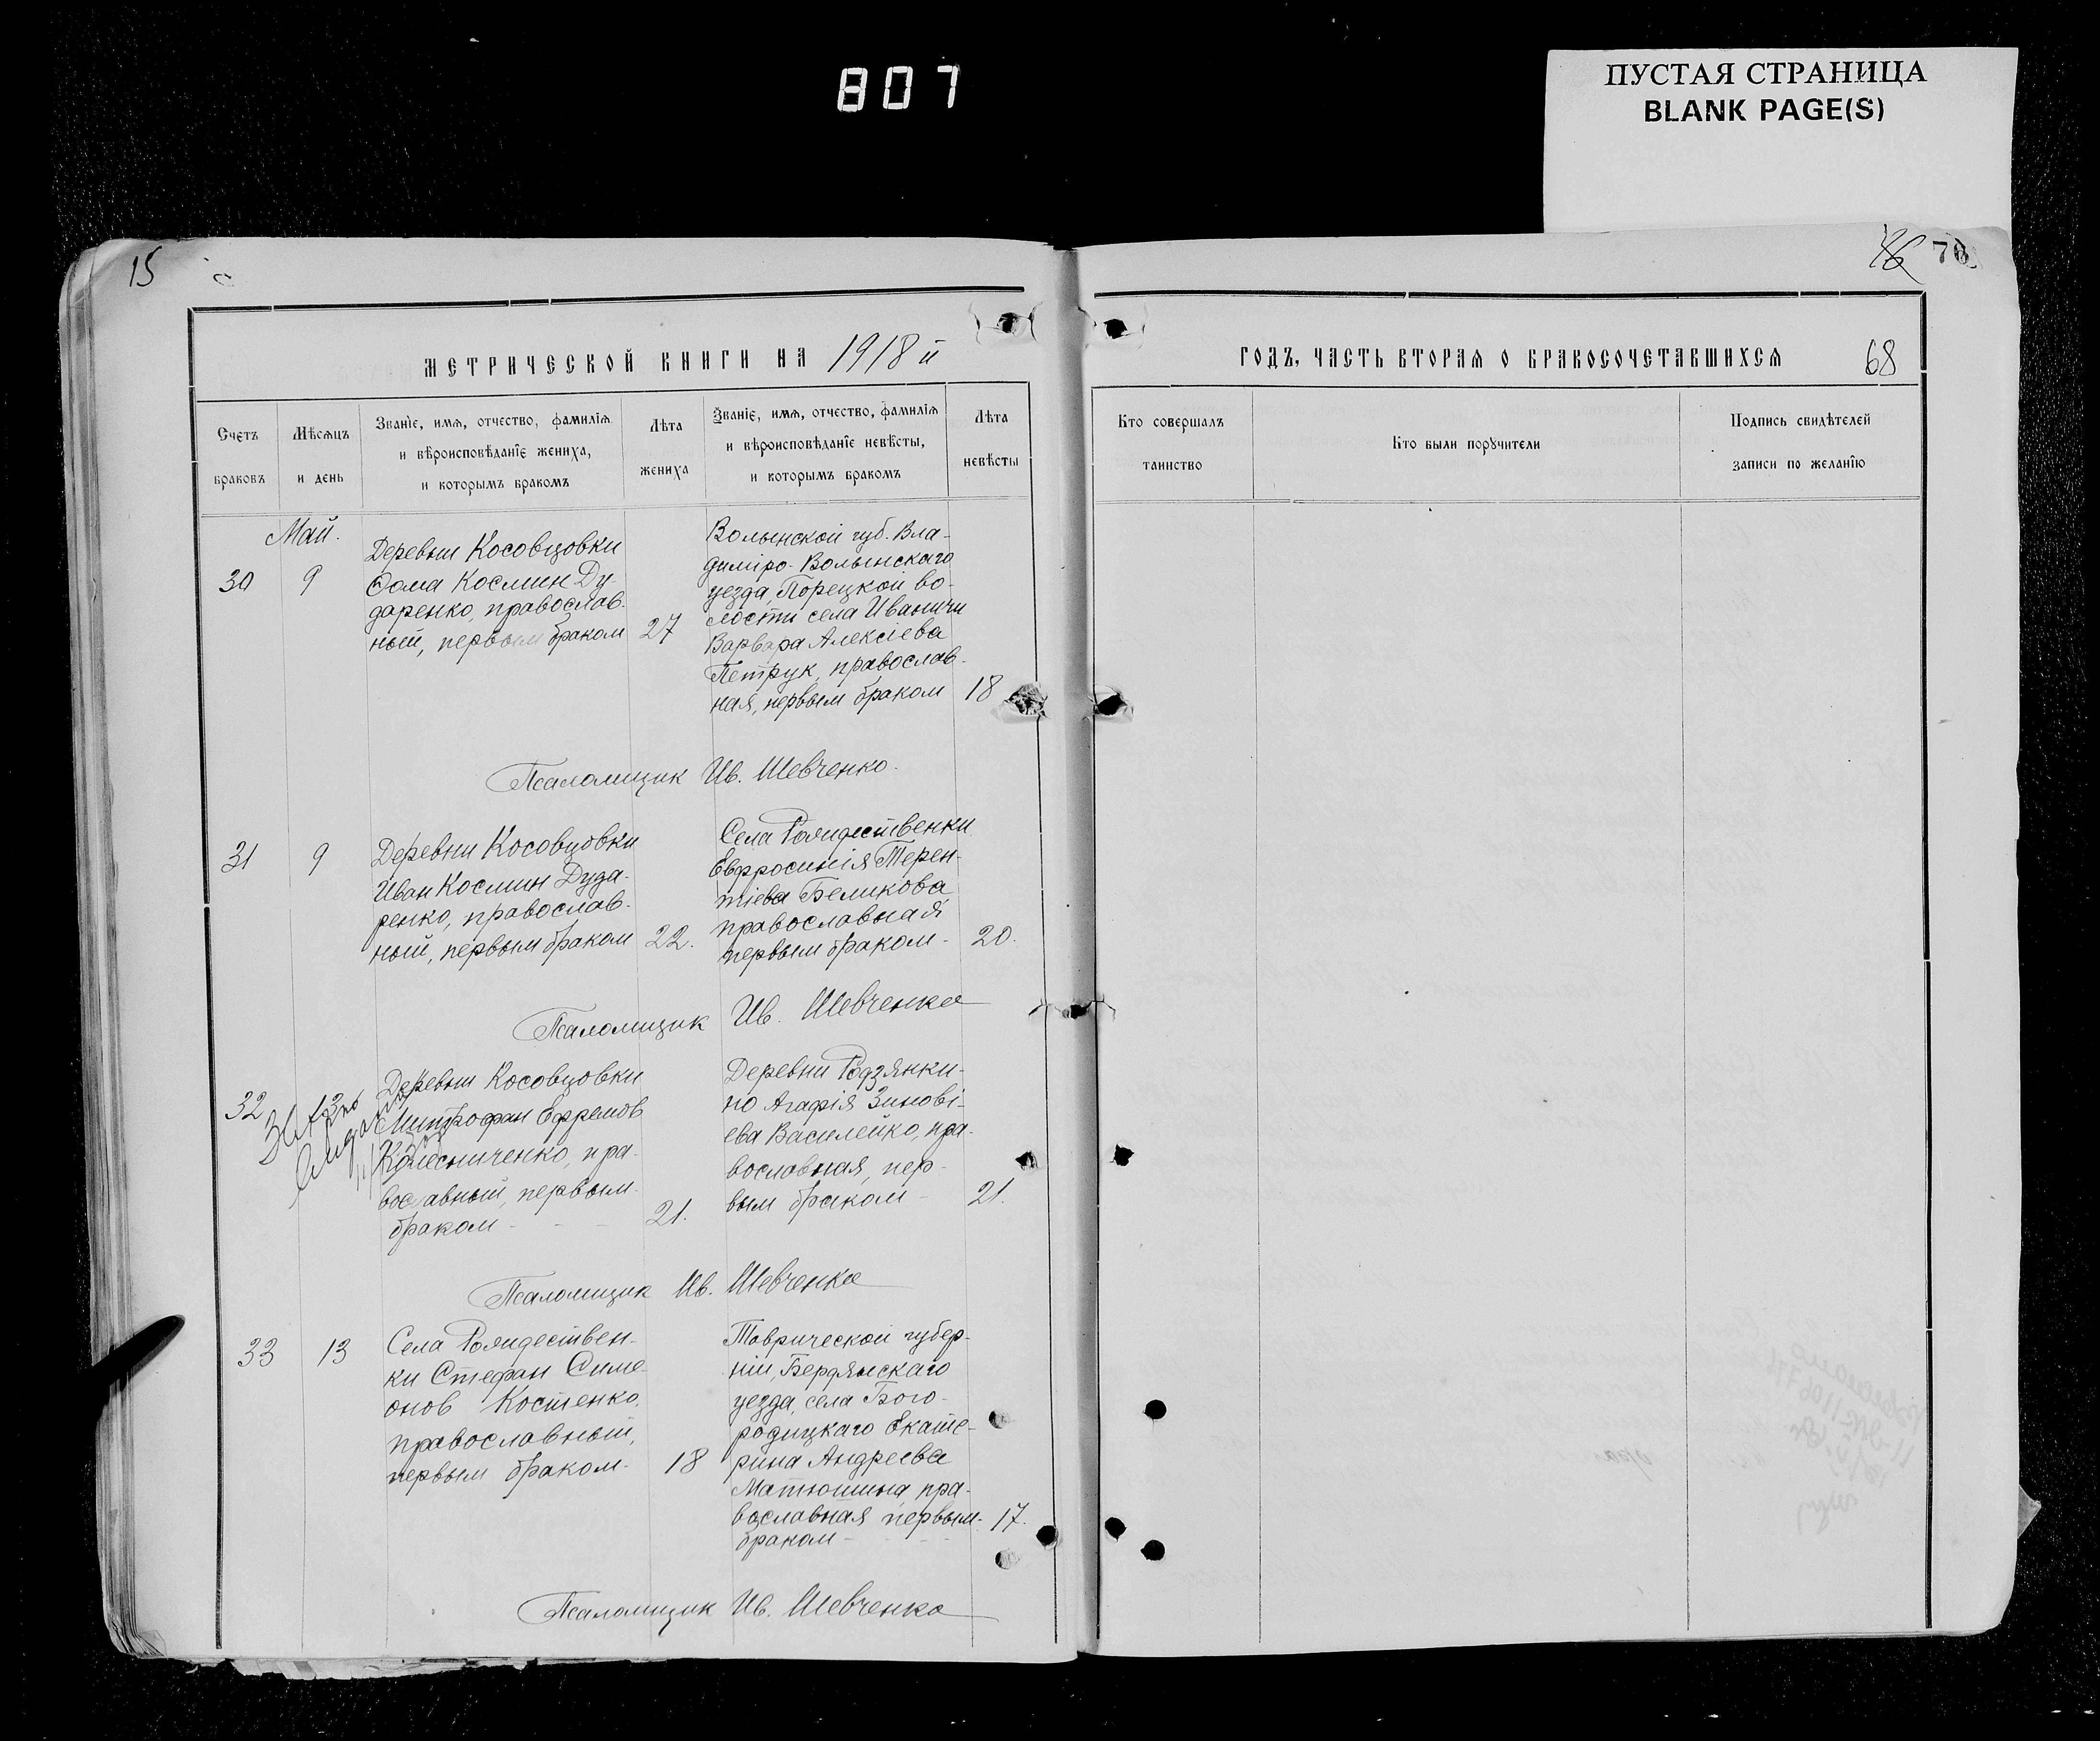 807
ПУСТАЯ СТРАНИЦА
BLANK PAGE(S)
15
70
МЕТРИЧЕСКОЙ КНИГИ НА 1918 й
ГОДЪ, ЧАСТЬ ВТОРАЯ О БРАКОСОЧЕТАВШИХСЯ
68
Счетъ браковъ
Мѣсяцъ и день
Званіе, имя, отчество, фамилія
и вѣроисповѣданіе жениха,
и которымъ бракомъ
Лѣта жениха
Званіе, имя, отчество, фамилія
и вѣроисповѣданіе невѣсты,
и которымъ бракомъ
Лѣта невѣсты
Кто совершалъ
таинство
Кто были поручители
Подпись свидѣтелей
записи по желанію
Май.
30
9
Деревни Косовцовки
Ѳома Космин Ду-
даренко, православ-
ный, первым браком
27
Волынской губ. Вла-
диміро-Волынскаго
уезда, Порецкой во-
лости села Иваничи
Варвара Алексіева
Петрук, православ-
ная, первым браком
18
Псаломщик Ив. Шевченко.
31
9
Деревни Косовцовки
Иван Космин Дуда-
ренко, православ-
ный, первым браком
22.
Села Рождественки
Евфросинія Терен-
тіева Беликова
православная
первым браком-
20.
Псаломщик Ив. Шевченко
32
13
Деревни Косовцовки
Митрофан Ефремов
Колесниченко, пра-
вославный, первым
браком -
21.
Деревни Родзянки-
но Агафія Зинові-
ева Василейко, пра-
вославная, пер-
вым браком -
21.
Псаломщик Ив. Шевченко
33
13
Села Рождествен-
ки Стефан Симе-
онов Костенко,
православный,
первым браком-
18
Таврической губер-
ніи, Бердянскаго
уезда, села Бого-
родицкаго Екате-
рина Андреева
Матюшина, пра-
вославная первым-
браком -
17.
Псаломщик Ив. Шевченко